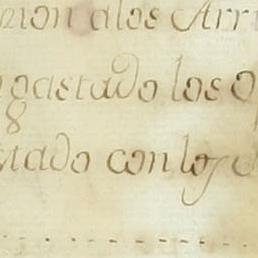 mon alos Arr
gastado los
8
stado con los